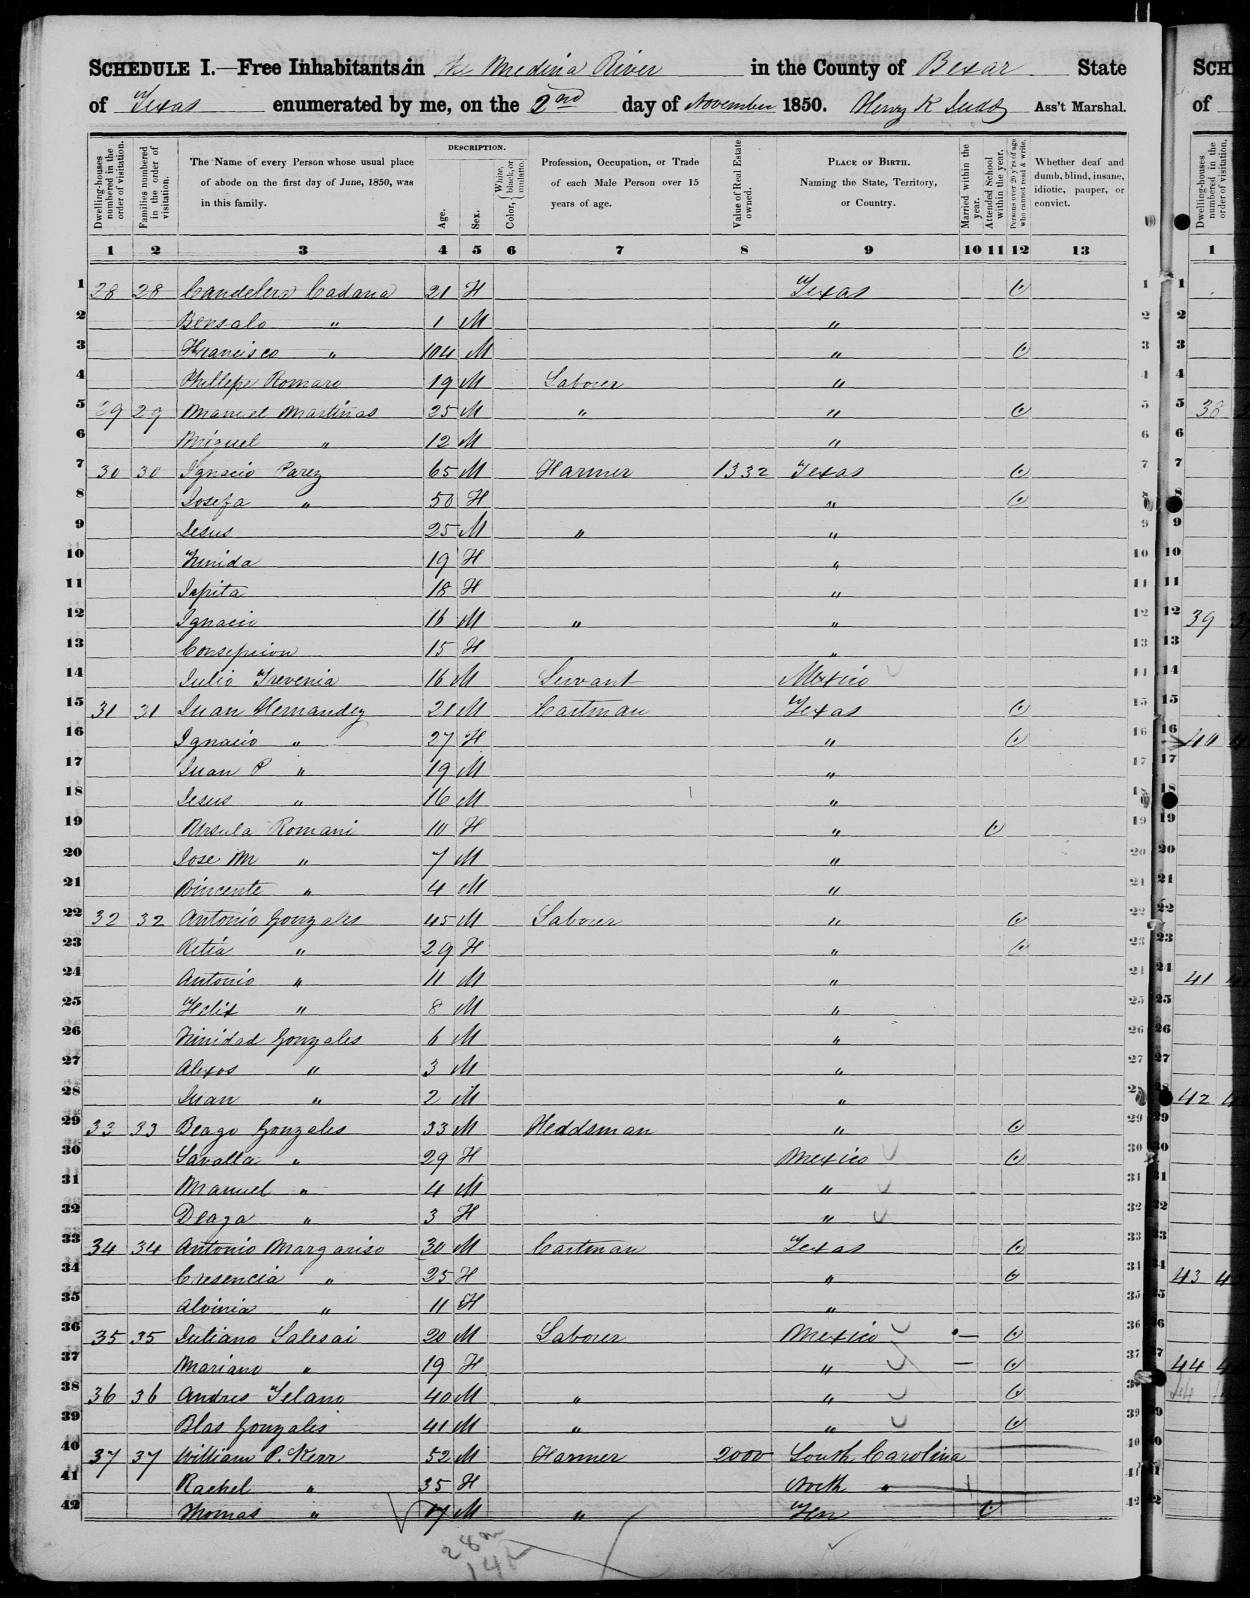 SCHEDULE I.—Free Inhabitants in the Medina River in the County of Bexar State
of Texas enumerated by me, on the 2nd day of November 1850. Henry K Judd Ass't Marshal.
Dwelling-houses numbered in the order of visitation.
Families numbered in the order of visitation.
The Name of every Person whose usual place of abode on the first day of June, 1850, was in this family.
DESCRIPTION.
Age.
Sex.
Color, { White, black, or mulatto.
Profession, Occupation, or Trade of each Male Person over 15 years of age.
Value of Real Estate owned.
PLACE OF BIRTH. Naming the State, Territory, or Country.
Married within the year.
Attended School within the year.
Persons over 20 y'rs of age who cannot read & write.
Whether deaf and dumb, blind, insane, idiotic, pauper, or convict.
1 2 3 4 5 6 7 8 9 10 11 12 13
1 28 28 Candelera Cadana 21 F Texas 1
2 Bensalo " 1 M " 2
3 Francisco " 104 M " 3
4 Phillepe Romaro 19 M Laborer " 4
5 29 29 Manuel Martinas 25 M " " 5
6 Miguel " 12 M " 6
7 30 30 Ignacio Parez 65 M Farmer 1332 Texas 7
8 Josefa " 50 F " 8
9 Jesus 25 M " " 9
10 Trinida 19 F " 10
11 Japita 18 F " 11
12 Ignacio 16 M " " 12
13 Consepcion 15 F " 13
14 Julio Trevenia 16 M Servant Mexico 14
15 31 31 Juan Hernandez 21 M Cartman Texas 15
16 Ignacio " 27 F " 16
17 Juan P " 19 M " 17
18 Jesus " 16 M "
19 Ursula Romani 10 F " 19
20 Jose M " 7 M " 20
21 Vincente " 4 M " 21
22 32 32 Antonio Gonzales 45 M Laborer " 22
23 Retia " 29 F " 23
24 Antonio " 11 M " 24
25 Felix " 8 M " 25
26 Trinidad Gonzales 6 M " 26
27 Alexos " 3 M " 27
28 Juan " 2 M "
29 33 33 Beago Gonzales 33 M Heddsman " 29
30 Savalla " 29 F Mexico 30
31 Manuel " 4 M " 31
32 Deaga " 3 F " 32
33 34 34 Antonio Margariso 30 M Cartman Texas 33
34 Cresencia " 25 F " 34
35 Alvinia " 11 F " 35
36 35 35 Juliano Salesai 20 M Laborer Mexico 36
37 Mariano " 19 F " 37
38 36 36 Andres Telano 40 M " "
39 Blas Gonzales 41 M " " 39
40 37 37 William P. Kerr 52 M Farmer 2000 South Carolina 40
41 Rachel " 35 F North " 41
42 Thomas " 17 M " Ten 42
28 m
14 f
SCH
of
Dwelling-houses numbered in the order of visitation.
1
38
39
40
41
42
43
44